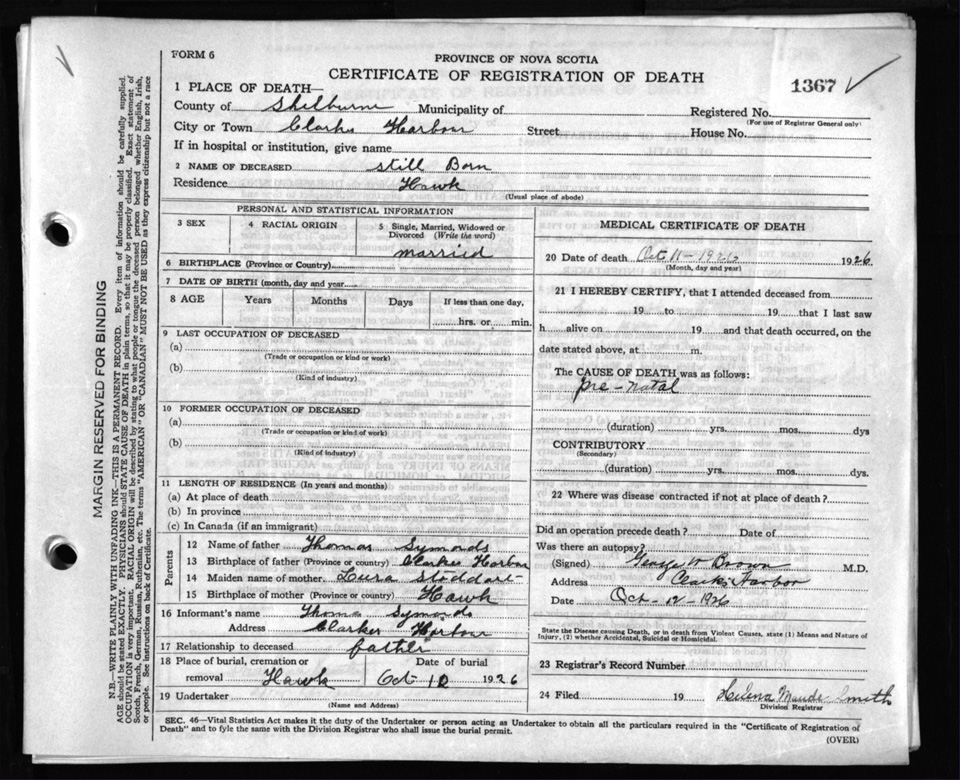 FORM 6
PROVINCE OF NOVA SCOTIA
CERTIFICATE OF REGISTRATION OF DEATH
1367
1 PLACE OF DEATH—
County of Shelburne Municipality of
Registered No.
(For use of Registrar General only)
City or Town Clarks Harbour Street House No.
If in hospital or institution, give name
2 NAME OF DECEASED still Born
Residence Hawk
(Usual place of abode)
PERSONAL AND STATISTICAL INFORMATION
3 SEX
4 RACIAL ORIGIN
5 Single, Married, Widowed or Divorced (Write the word)
married
6 BIRTHPLACE (Province or Country)
7 DATE OF BIRTH (month, day and year)
8 AGE Years Months Days If less than one day,
hrs. or min.
9 LAST OCCUPATION OF DECEASED
(a)
(Trade or occupation or kind or work)
(b)
(Kind of industry)
10 FORMER OCCUPATION OF DECEASED
(a)
(Trade or occupation or kind of work)
(b)
(Kind of industry)
11 LENGTH OF RESIDENCE (In years and months)
(a) At place of death
(b) In province
(c) In Canada (if an immigrant)
Parents
12 Name of father Thomas Symonds
13 Birthplace of father (Province or country) Clarkes Harbor
14 Maiden name of mother Loura Stoddart
15 Birthplace of mother (Province or country) Hawk
16 Informant's name Thomas Symonds
Address Clarkes Harbour
17 Relationship to deceased father
18 Place of burial, cremation or removal Hawk
Date of burial
Oct 12 1926
19 Undertaker
(Name and Address)
MEDICAL CERTIFICATE OF DEATH
20 Date of death Oct 11-1926 1926
(Month, day and year)
21 I HEREBY CERTIFY, that I attended deceased from
19 to 19 that I last saw
h alive on 19 and that death occurred, on the
date stated above, at m.
The CAUSE OF DEATH was as follows:
pre-natal
(duration) yrs. mos. dys
CONTRIBUTORY
(Secondary)
(duration) yrs. mos. dys.
22 Where was disease contracted if not at place of death?
Did an operation precede death? Date of
Was there an autopsy?
(Signed) George W Brown M.D.
Address Clarks Harbor
Date Oct-12-1926
State the Disease causing Death, or in death from Violent Causes, state (1) Means and Nature of
Injury, (2) whether Accidental, Suicidal or Homicidal.
23 Registrar's Record Number
24 Filed 19 Helena Maude Smith
Division Registrar
SEC. 46—Vital Statistics Act makes it the duty of the Undertaker or person acting as Undertaker to obtain all the particulars required in the "Certificate of Registration of
Death" and to fyle the same with the Division Registrar who shall issue the burial permit.
(OVER)
MARGIN RESERVED FOR BINDING
N.B.—WRITE PLAINLY WITH UNFADING INK—THIS IS A PERMANENT RECORD. Every item of information should be carefully supplied.
AGE should be stated EXACTLY. PHYSICIANS should STATE CAUSE OF DEATH in plain terms, so that it may be properly classified. Exact statement of
OCCUPATION is very important. RACIAL ORIGIN will be described by stating to what people or tongue the deceased person belonged whether English, Irish,
Scotch, French, German, Russian, Ruthenian, etc. The terms "AMERICAN" or "CANADIAN" MUST NOT BE USED as they express citizenship but not a race
or people. See instructions on back of Certificate.